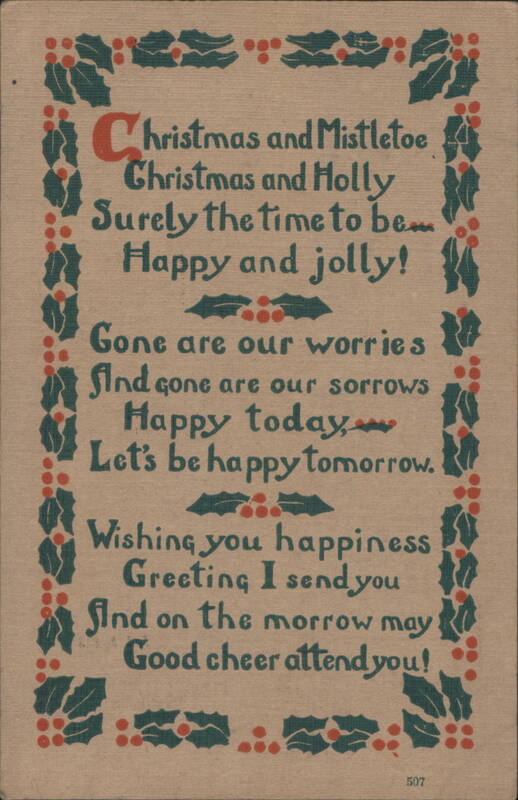 Christmas and Mistletoe
Christmas and Holly
Surely the time to be—
Happy and jolly!
Gone are our worries
And gone are our sorrows
Happy today,—
Let's be happy tomorrow.
Wishing you happiness
Greeting I send you
And on the morrow may
Good cheer attend you!
507